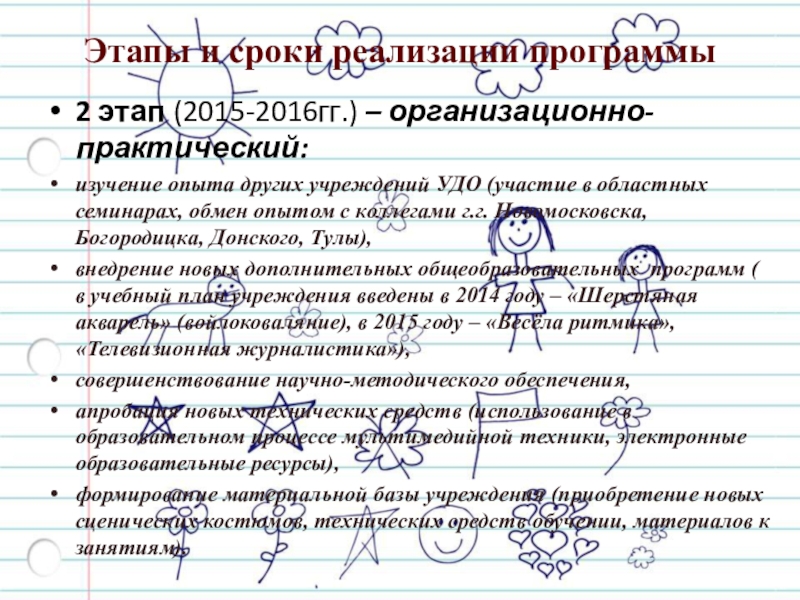 Этапы и сроки реализации программы
• 2 этап (2015-2016гг.) – организационно-
практический:
• изучение опыта других учреждений УДО (участие в областных
семинарах, обмен опытом с коллегами г.г. Новомосковска,
Богородицка, Донского, Тулы),
• внедрение новых дополнительных общеобразовательных программ (
в учебный план учреждения введены в 2014 году – «Шерстяная
акварель» (войлоковаляние), в 2015 году – «Весёла ритмика»,
«Телевизионная журналистика»),
• совершенствование научно-методического обеспечения,
• апробация новых технических средств (использование в
образовательном процессе мультимедийной техники, электронные
образовательные ресурсы),
• формирование материальной базы учреждения (приобретение новых
сценических костюмов, технических средств обучении, материалов к
занятиям).